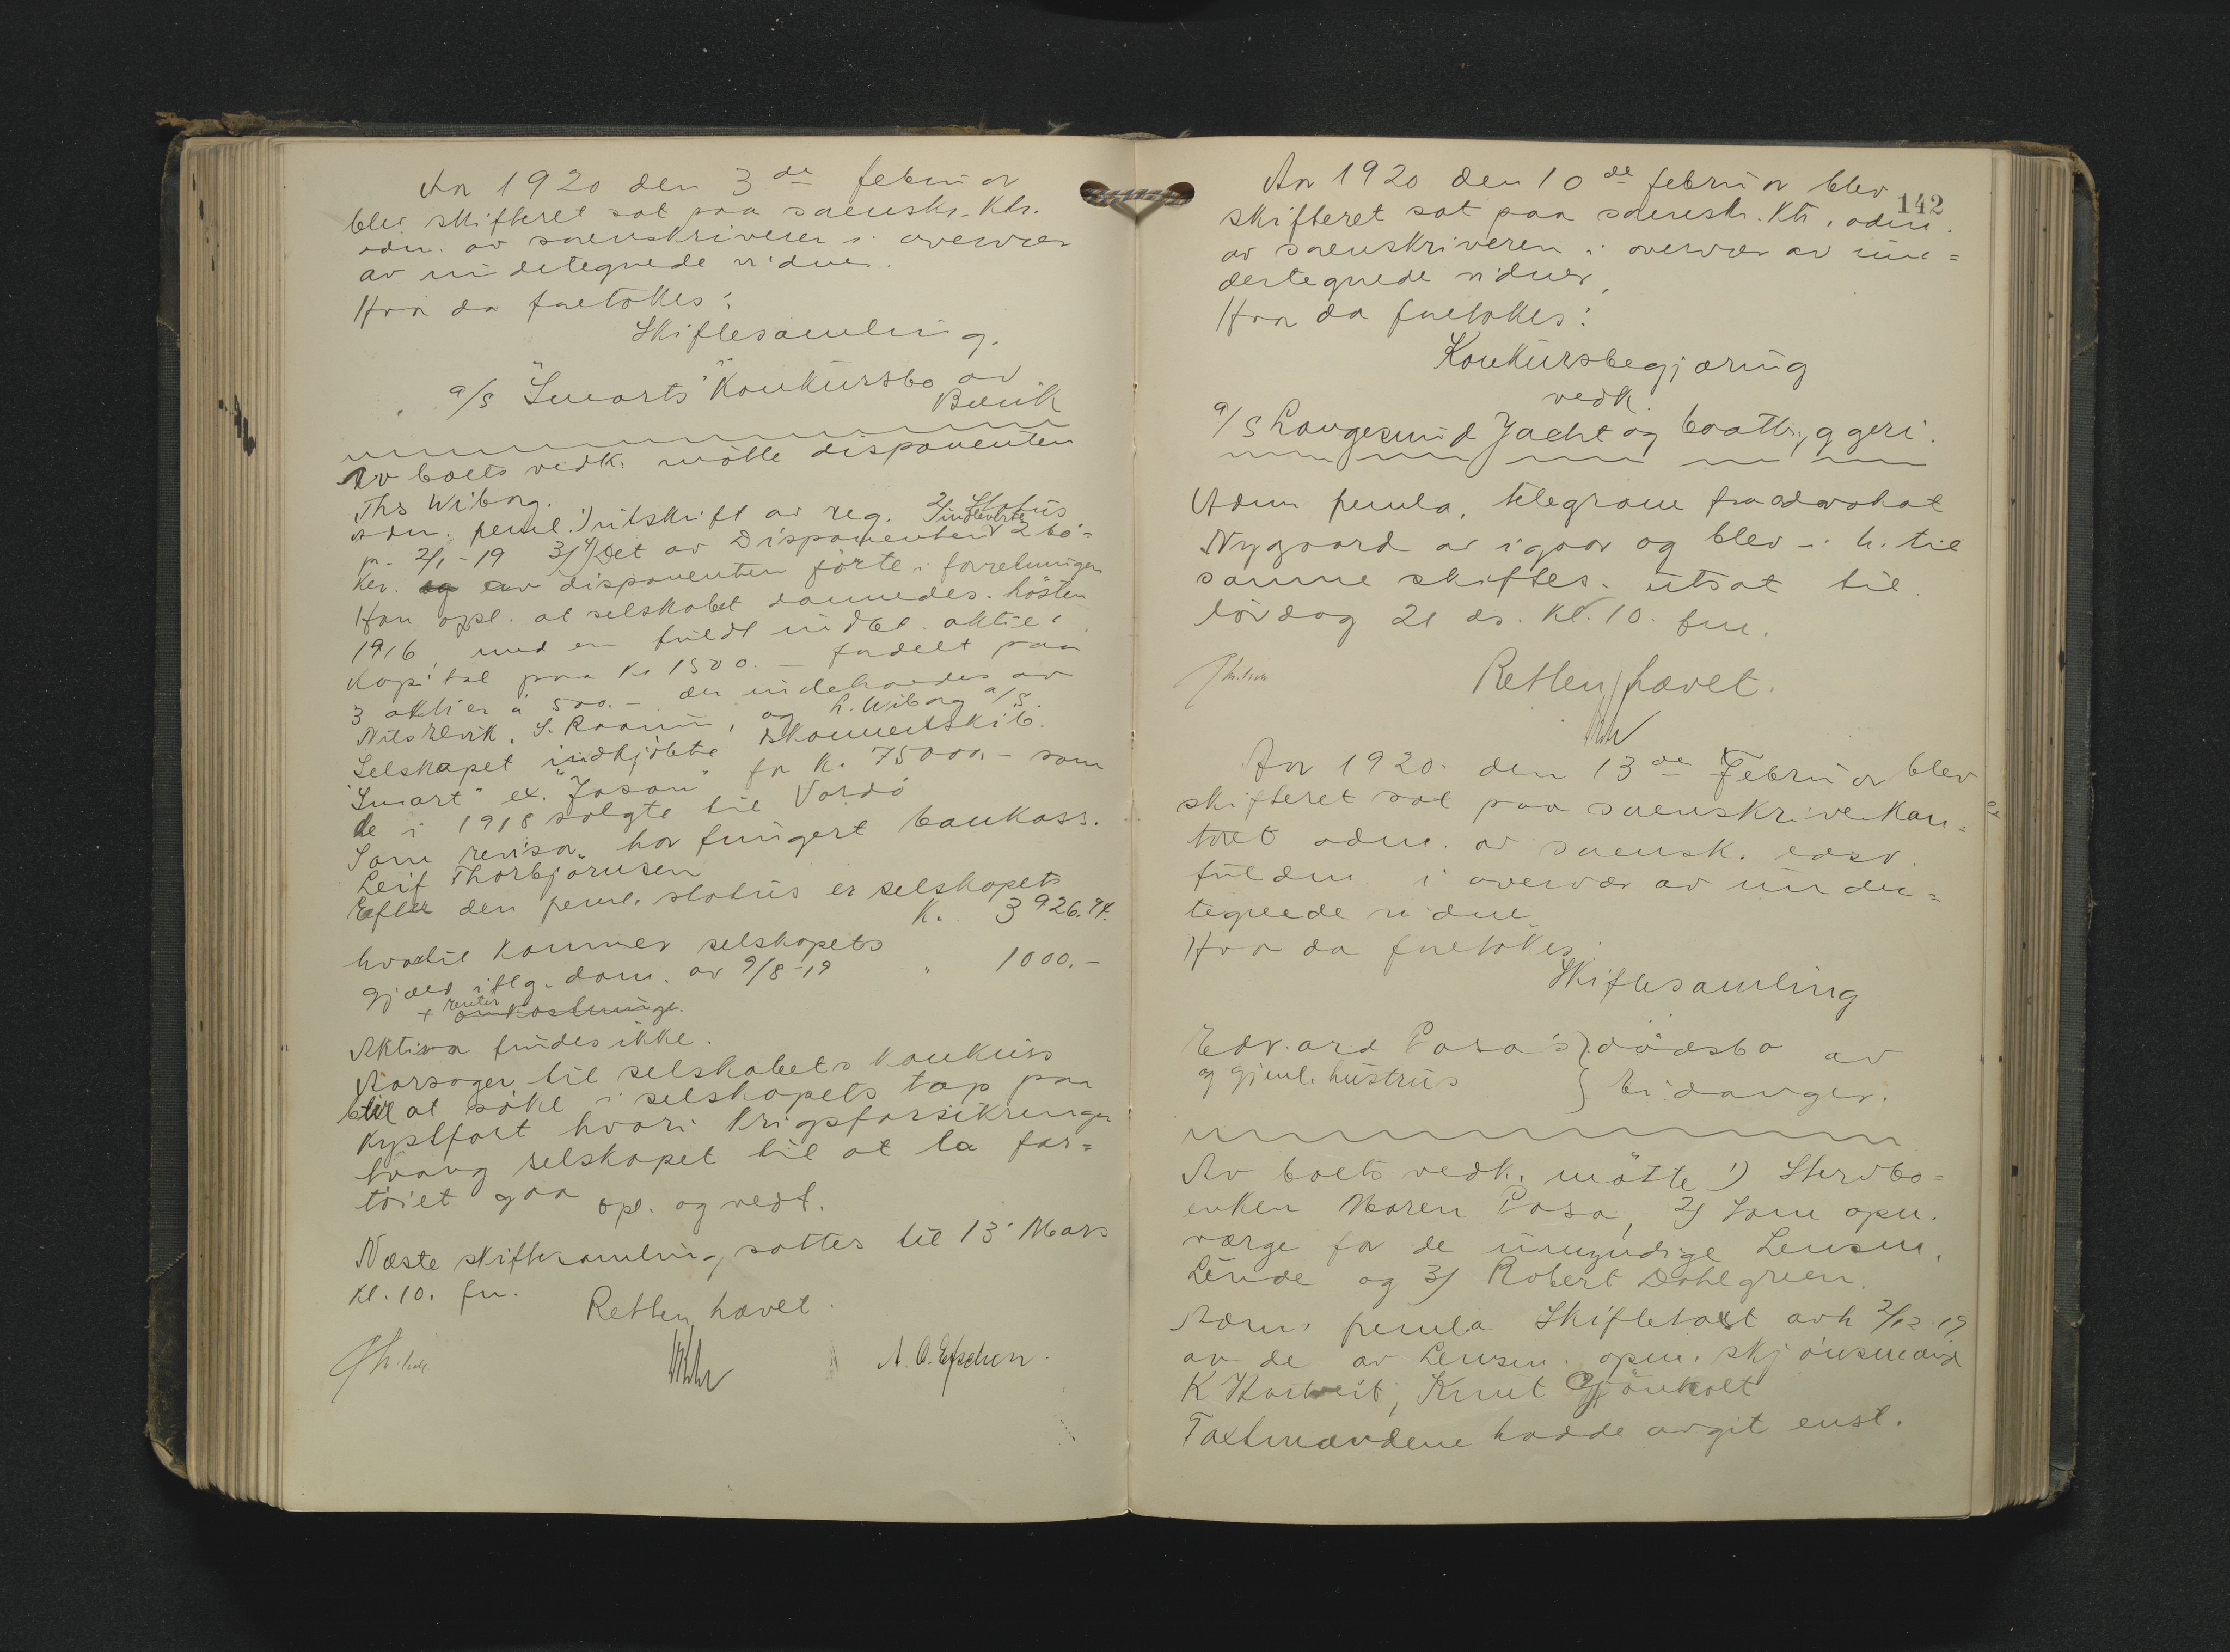 Aar 1920 den 3de februar
blev skifteret sat paa sorenskr. Ktr.
adm. av sorenskriveren i overvær
av undertegnede vidner.
Hvor da foretokes:
Skiftesamling.
a/s "Smarts" Konkursbo av
Bævik
Av boets vedk. møtte disponenten
Ths Wiborg.
Adm. feml. 1) utskrift av reg. 2/ Status
pr. 2/1-19 3/ Det av Disponenten indleverte 2 bø=
ker. av disponenten førte i forretningen
Han opl. at selskabet dannedes høsten
1916, med en fuldt indbet. aktie
kapital paa Kr 1500.- fordelt paa
3 aktier a 500.- der indehavdes av
Nils Elvik, S. Raanum, og H. Wiborg a/s.
Selskapet indkjøbte skonnertskib.
"Smart" ex. "Jason" for Kr. 75000.- som
de i 1918 solgte til Vardø
Som revisor har fungert bankass.
Leif Thorbjørnsen
Efter den feml. status er selskapets
Kr. 3926.94.
hvortil kommer selskapets
gjæld iflg. dom. av 9/8-19 " 1000.-
+ renter
omkostninger.
Aktiva findes ikke.
Aarsager til selskabets konkurs
blir at søke i selskapets tap paa
kystfart hvori Krigsforsikringen
tvang selskapet til at la far=
tøiet gaa opl. og vedt.
Næste skiftesamling sattes til 13 Mars
Kl. 10. fm.
Retten hævet.
A. O. Eschen.
142
Aar 1920 den 10de februar blev
skifteret sat paa sorenskr. Ktr. adm.
av sorenskriveren i overvær av un=
dertegnede vidner,
Hvor da foretokes:
Konkursbegjæring
vedk.
a/s Langesund Yacht og baatbyggeri.
Adm femla. telegram fra advokat
Nygaard av igaar og blev i h. til
samme skiftes. utsat til
lørdag 21 ds. Kl. 10. fm.
Retten hævet.
Aar 1920. den 13de Februar blev
skifteret sat paa sorenskriverkon=
toret adm. av sorensk. edsv.
fuldm i overvær av under=
tegnede vidner
Hvor da foretokes:
Skiftesamling
Edvard Pasa's } dødsbo av
og gjenl. hustrus } Eidanger.
Av boets vedk. møtte 1) Stervbo=
enken Maren Pasa, 2) Som opn.
værge for de umyndige Lensm.
Linde og 3) Robert Dahlgreen.
Adm. femla Skiftetaxt avh 2/12 19
av de av Lensm. opn. skjønsmænd
K Hortveit, Knut Gjønholt
Taxtmændene hadde avgit enst.